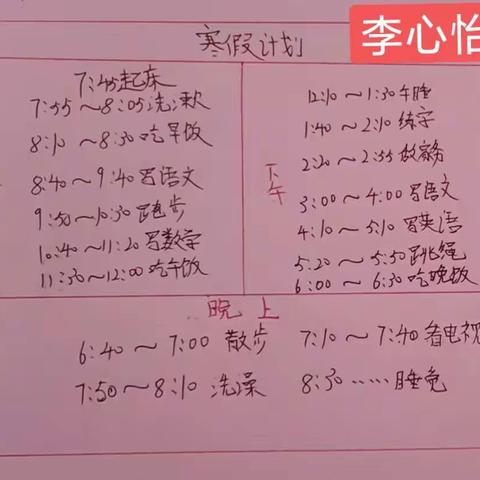 李心怡
寒假计划
7:45起床
7:55～8:05洗漱
8:10～8:30吃早饭
8:40～9:40写语文
9:50～10:30跑步
10:40～11:20写数学
11:30～12:00吃午饭
下午
12:10～1:30午睡
1:40～2:10练字
2:20～2:55做家务
3:00～4:00写语文
4:10～5:10写英语
5:20～5:50跳绳
6:00～6:30吃晚饭
晚上
6:40～7:00散步
7:10～7:40看电视
7:50～8:10洗澡
8:30……睡觉